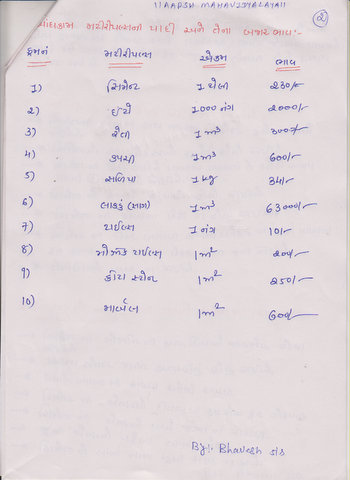 ||AADSH MAHAVIDYALAYA||
②
બાંધકામ મટીરીયલ્સની યાદી અને તેના બજાર ભાવ:-
ક્રમનં મટીરીયલ્સ એકમ ભાવ
1) સિમેન્ટ 1 થેલી 230/-
2) ઈંટો 1000 નંગ 2000/-
3) રેતી 1 m³ 300/-
4) કપચી 1 m³ 600/-
5) સળિયા 1 kg 34/-
6) લાકડું (સાગ) 1 m³ 63000/-
7) ટાઈલ્સ 1 નંગ 10/-
8) મોઝેક ટાઈલ્સ 1 m² 200/-
9) કોટા સ્ટોન 1 m² 250/-
10) માર્બલ 1 m² 600/-
By:- Bhavesh